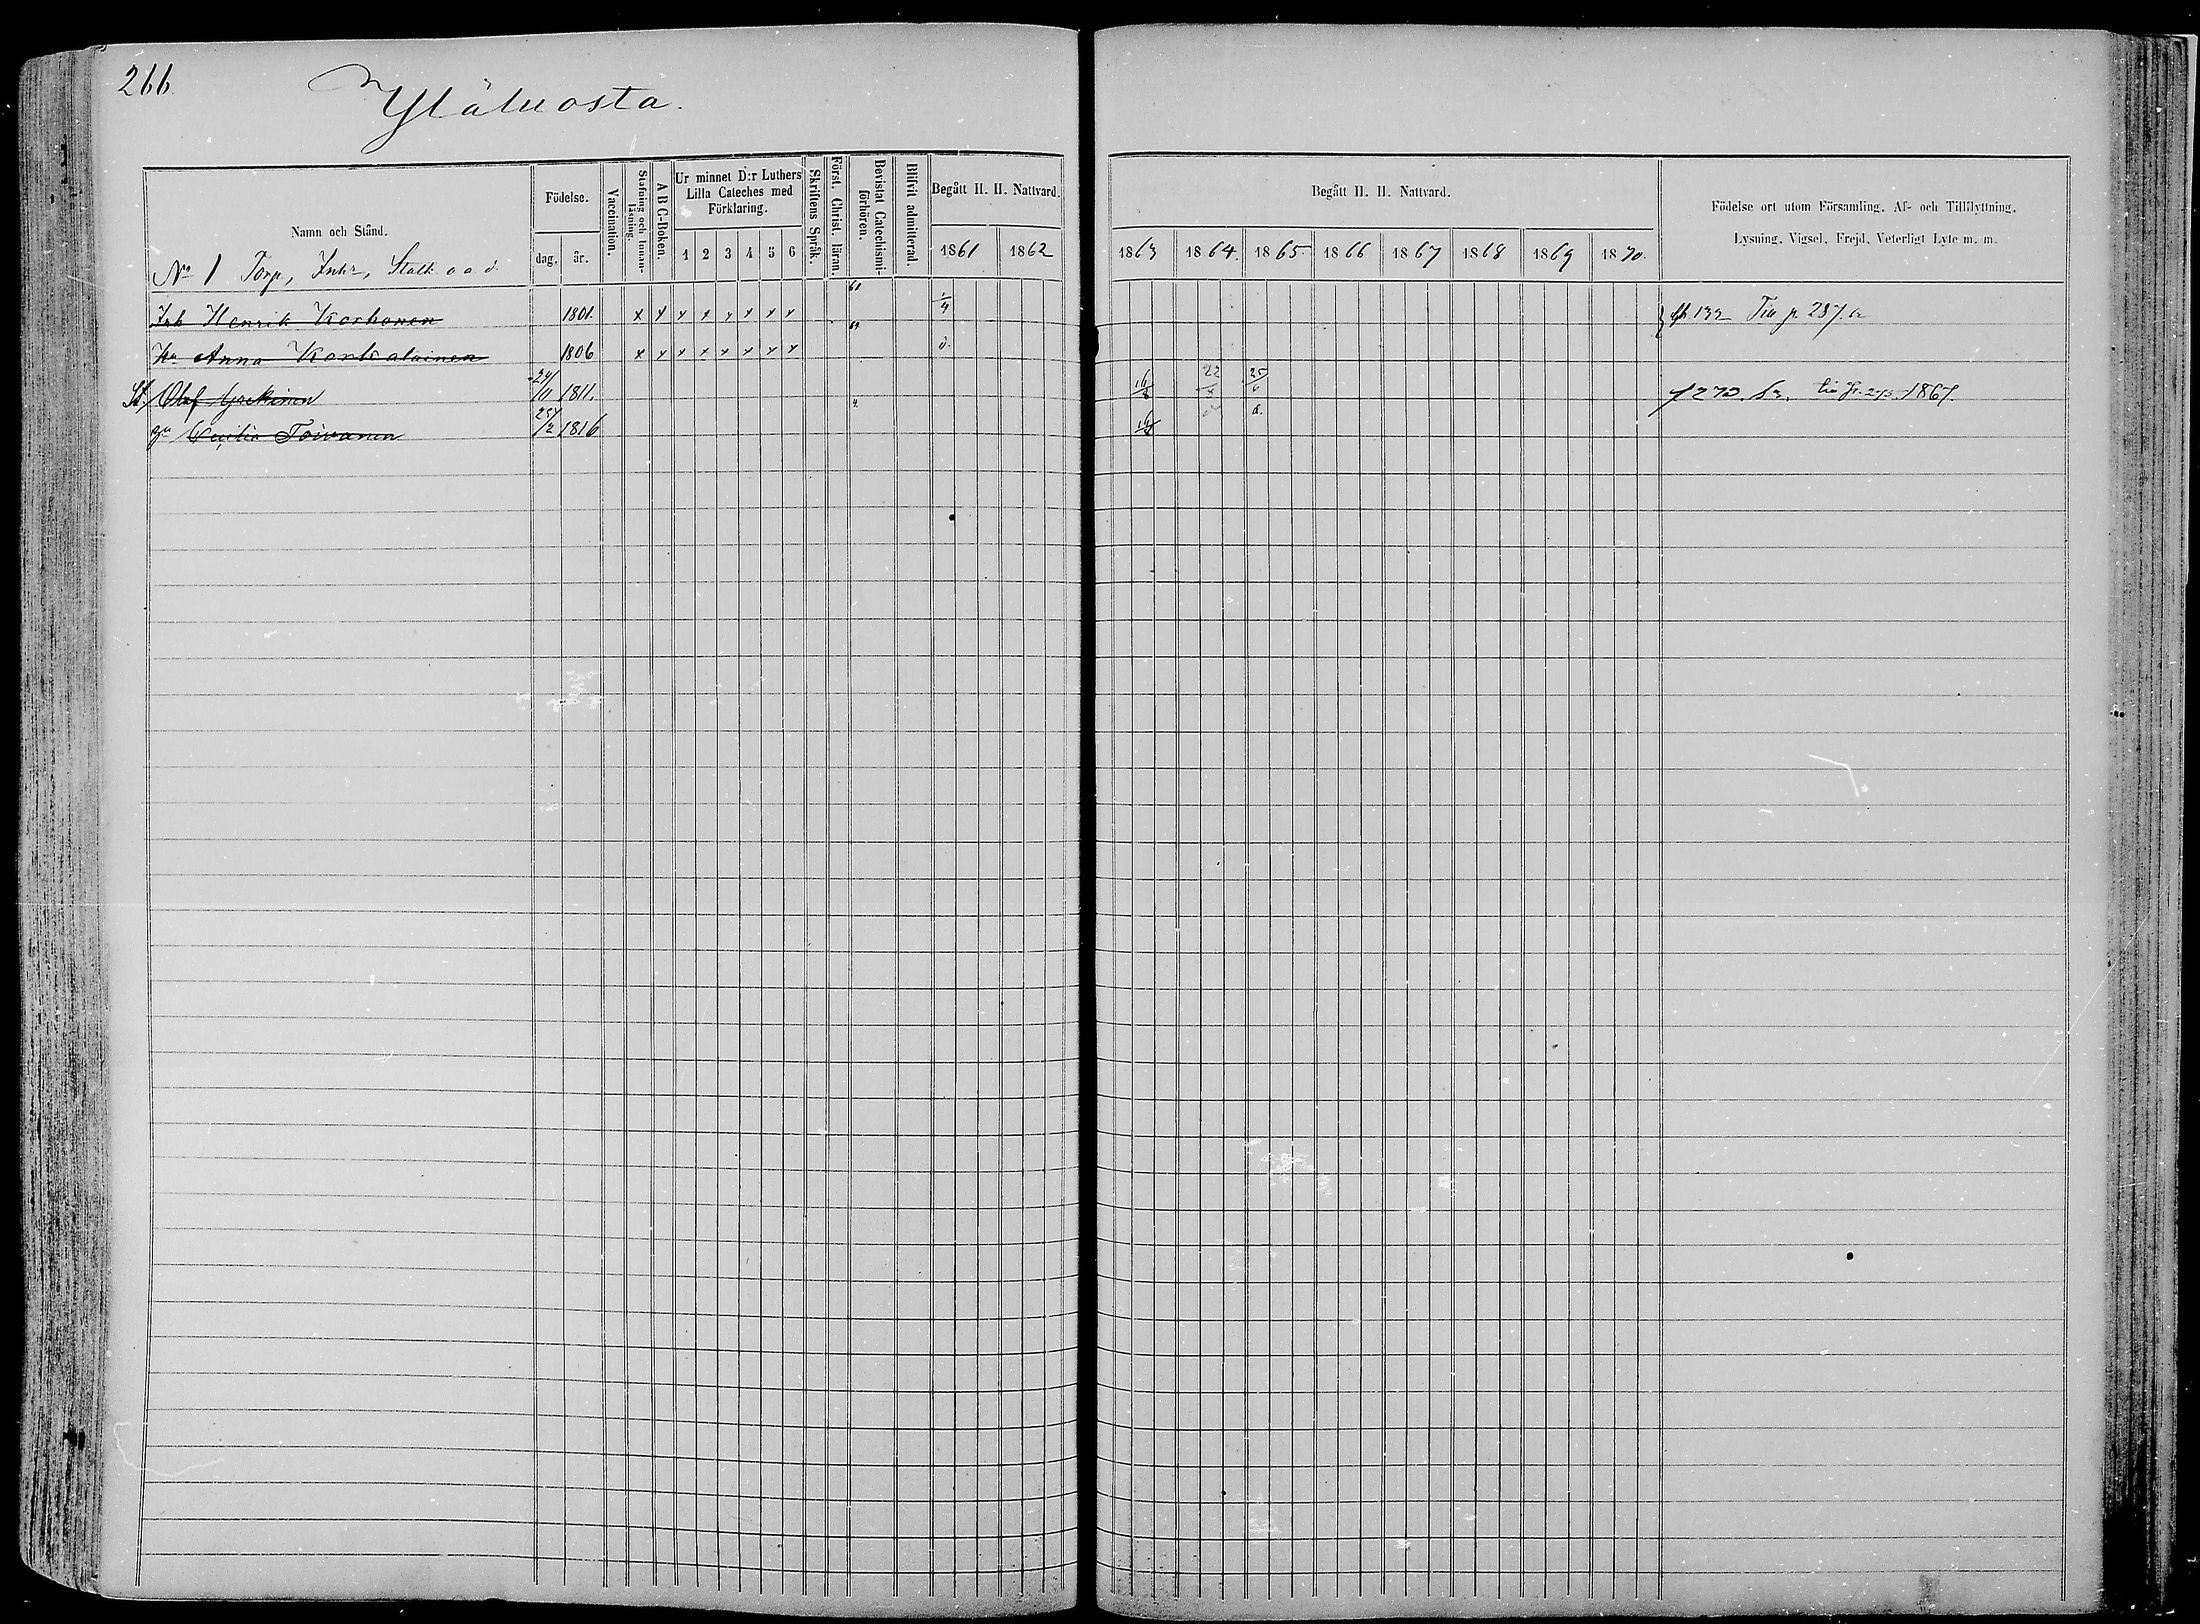 266
Yläluosta.
Namn och Stånd.
Födelse.
dag. år.
Vaccination.
Stafning och Innanläsning.
A B C-Boken.
Ur minnet D:r Luthers Lilla Cateches med Förklaring.
1 2 3 4 5 6
Skriftens Språk.
Först. Christ. läran.
Bevistat Catechismiförhören.
Blifvit admitterad
Begått H. H. Nattvard.
1861 1862
Begått H. H. Nattvard.
1863 1864. 1865. 1866 1867 1868 1869 1870.
Födelse ort utom Församling. Af- och Tillflyttning.
Lysning. Vigsel. Frejd. Veterligt Lyte m. m.
No 1 Torp, Inhs, Statk o a d
Inh Henrik Korhonen 1801. x x x x x x x x 61 1/4 fp. 132 Tia p 287.
Hu Anna Karkalainen 1806 x x x x x x x x 61 d.
St. Olof 24/10 1811. 16/8 22 25/6 f 270. 1867.
Cecilia Toivanen 25/2 1816 16/8 d.